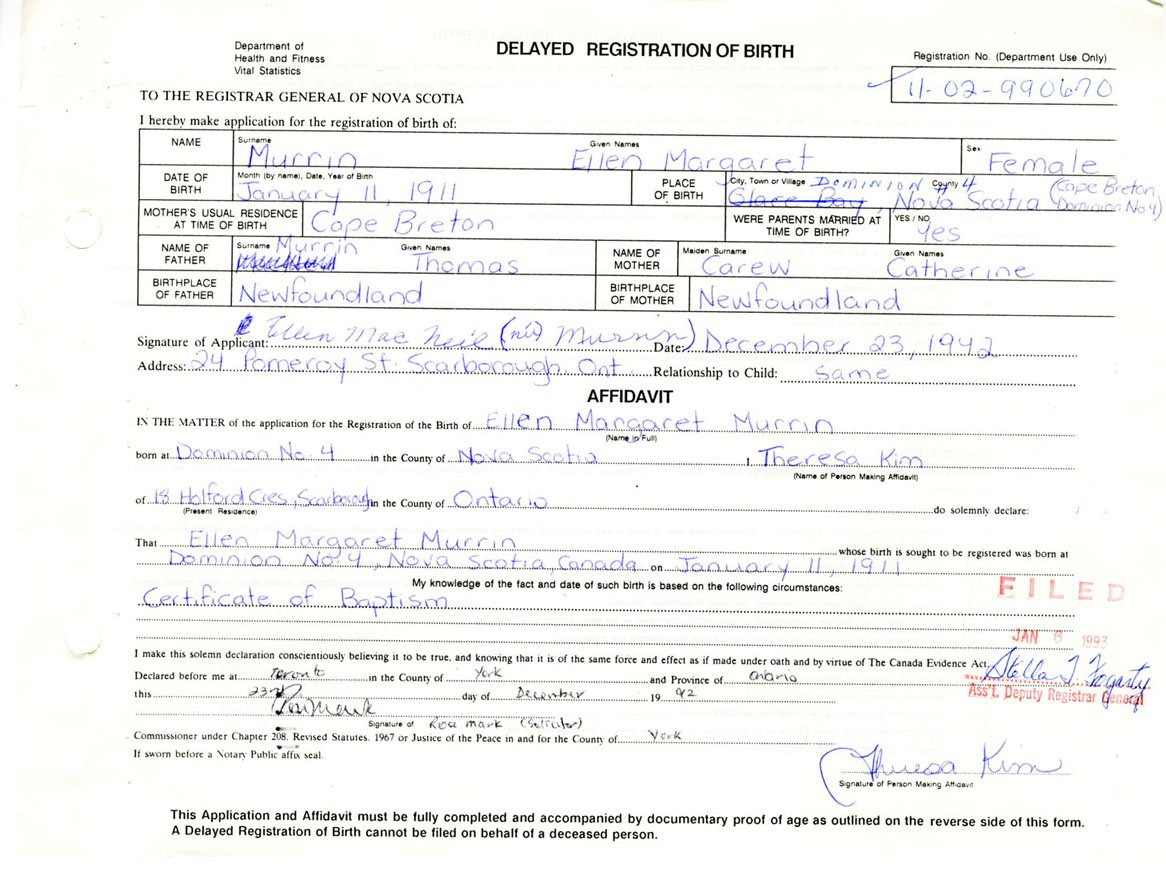 Department of
Health and Fitness
Vital Statistics
DELAYED REGISTRATION OF BIRTH
Registration No. (Department Use Only)
11-02-990670
TO THE REGISTRAR GENERAL OF NOVA SCOTIA
I hereby make application for the registration of birth of:
NAME Surname Murrin Given Names Ellen Margaret Sex Female
DATE OF BIRTH Month (by name), Date, Year of Birth January 11, 1911 PLACE OF BIRTH City, Town or Village DOMINION County 4 Glace Bay, Nova Scotia (Cape Breton, Dominion No 4)
MOTHER'S USUAL RESIDENCE AT TIME OF BIRTH Cape Breton WERE PARENTS MARRIED AT TIME OF BIRTH? YES / NO Yes
NAME OF FATHER Surname Murrin Given Names Thomas NAME OF MOTHER Maiden Surname Carew Given Names Catherine
BIRTHPLACE OF FATHER Newfoundland BIRTHPLACE OF MOTHER Newfoundland
Signature of Applicant: Ellen Mac Neil (née Murrin) Date: December 23, 1942
Address: 24 Pomeroy St. Scarborough, Ont Relationship to Child: Same
AFFIDAVIT
IN THE MATTER of the application for the Registration of the Birth of Ellen Margaret Murrin
(Name in Full)
born at Dominion No. 4 in the County of Nova Scotia I, Theresa Kim
(Name of Person Making Affidavit)
of 18 Holford Cres, Scarborough in the County of Ontario do solemnly declare:
(Present Residence)
That Ellen Margaret Murrin whose birth is sought to be registered was born at
Dominion No. 4, Nova Scotia, Canada on January 11, 1911
My knowledge of the fact and date of such birth is based on the following circumstances:
Certificate of Baptism
FILED
JAN 6 1993
I make this solemn declaration conscientiously believing it to be true, and knowing that it is of the same force and effect as if made under oath and by virtue of The Canada Evidence Act.
Stella J Fogarty
Ass't. Deputy Registrar General
Declared before me at Toronto in the County of York and Province of Ontario
this 23rd day of December 19 92
Signature of Rosa Mark (Solicitor)
Commissioner under Chapter 208, Revised Statutes, 1967 or Justice of the Peace in and for the County of York
If sworn before a Notary Public affix seal.
Theresa Kim
Signature of Person Making Affidavit
This Application and Affidavit must be fully completed and accompanied by documentary proof of age as outlined on the reverse side of this form.
A Delayed Registration of Birth cannot be filed on behalf of a deceased person.